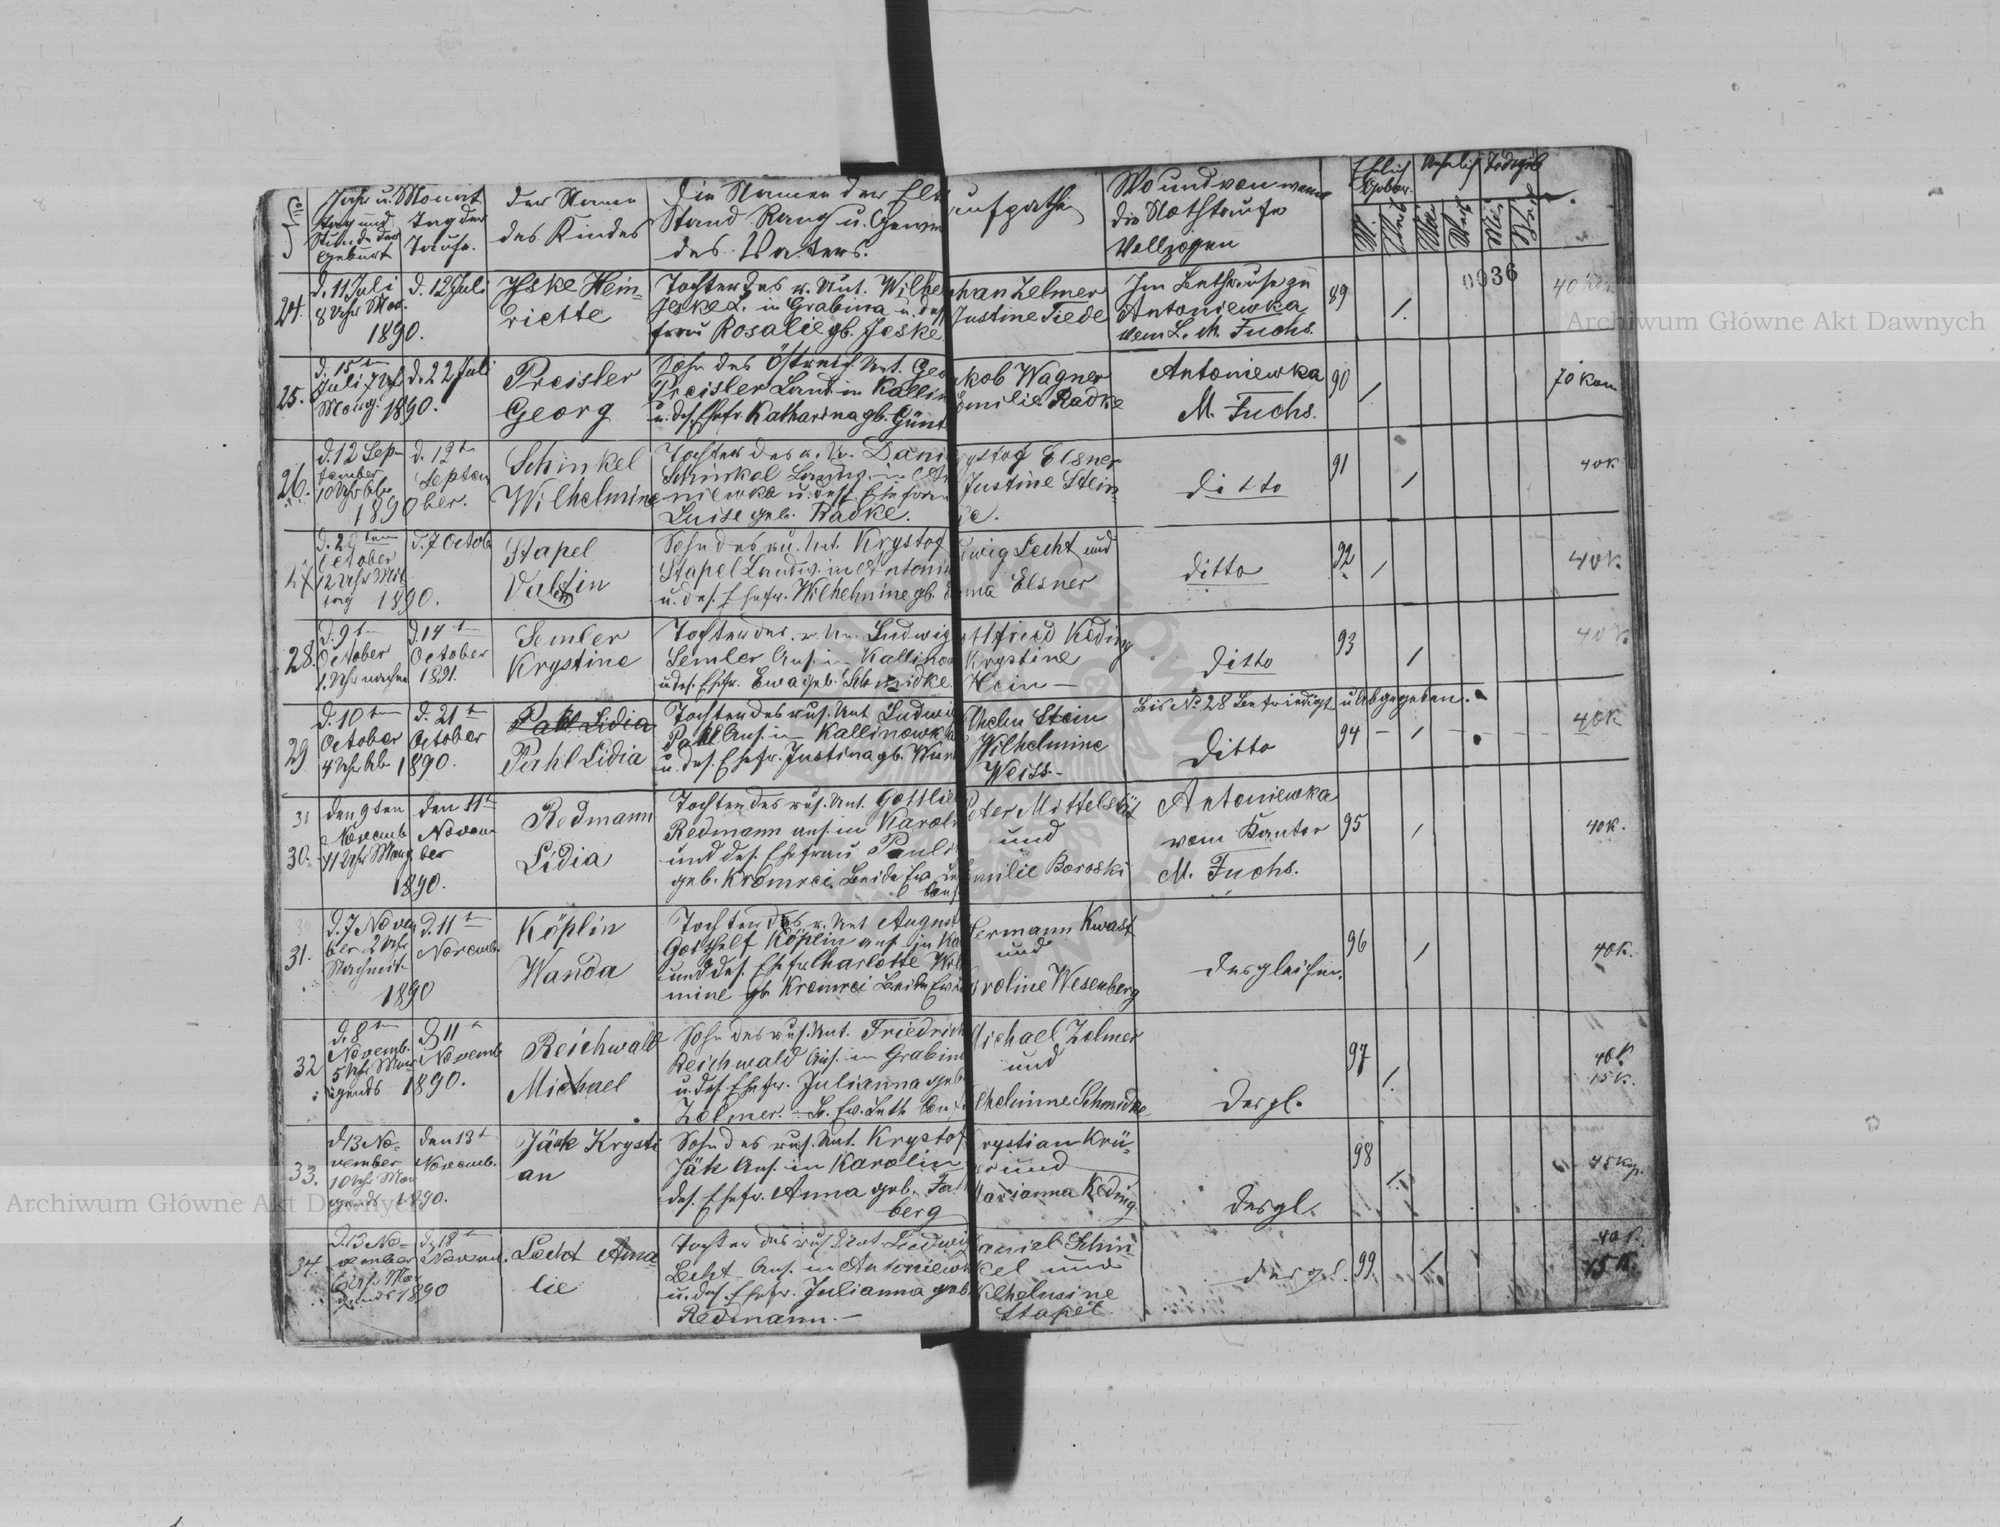 Jahr u. Monat
Tag und Stunde der Geburt
Tag der Taufe.
Der Name
des Kindes
Die Namen der Elt
Stand Rang u. Gewer
des Vaters.
aufpathe
Wo und von wem
die Nothtaufe
Vollzogen
Ehelich Gebor.
Unehelich
Todtgeb
0036
24.
d. 11 Juli
8 Uhr Mor.
1890.
d. 12 Juli
Jeske Hein-
riette
Tochter des r. Unt. Wilhe
Jeske L. in Grabina u. des
frau Rosalie gb. Jeske
han Zelmer
Justine Tiede
Im Bethause zu
Antoniewka
vom L. M. Fuchs.
89
40 Kop.
25.
d. 15ten
Juli 7 Uhr
Morg. 1890.
d. 22 Juli
Preisler
Georg
Sohn des Östreich. Unt. Geo
Preisler Landw. in Kallin
u. des. Ehefr. Katharina gb. Günt
kob Wagner
Emilie Radke
Antoniewka
M. Fuchs.
90
70 Kop.
26.
d. 12 Sep-
tember
10 Uhr Ab.
1890
d. 19t
Septem
ber.
Schinkel
Wilhelmine
Tochter des r. Un. Dani
Schinkel Landw. in Anto
niewka u. des. Ehefrau
Luise geb. Radke.
ystof Elsner
Justine Stein-
ke.
ditto
91
40 K
27
d. 29ten
October
12 Uhr Mit
tag 1890.
d. 7 Octob
Stapel
Valtin
Sohn des ru. Unt. Krystof
Stapel Landw. in Antonie
u. des. Ehefr. Wilhelmine gb.
wig Lecht und
Elsner
ditto
92
40 K.
28.
d. 9t
October
1. Uhr nachm
d. 14t
October
1891.
Semler
Krystine
Tochter des. r. Un. Ludwig
Semler Ans. in Kallinow
u. des. Ehefr. Ewa geb. Schmidke.
ttfried Keding
Krystine
Hein —
ditto
93
40 K.
Bis No 28 Befriedigt u Abgegeben.
29
d. 10ten
October
4 Uhr Ab. 1890.
d. 21t
October
Pahl Lidia
Pahl Lidia
Tochter des rus. Unt Ludwi
Pahl Ans. in Kallinowk
u. des. Ehefr. Justina gb. Wur
lhelm Stein
Wilhelmine
Weiss.
ditto
94
40 K
31
30.
den 9ten
Novemb
11 Uhr Morg
1890.
den 11t
Novem
ber
Redmann
Lidia
Tochter des rus. Unt. Gottlie
Redmann ans. in Karoli
und des. Ehefrau Pauli
geb. Kromrei. Beide Ev.
Peter Mittelstät
und
Emilie Boroski
Antoniewka
vom Kantor
M. Fuchs.
95
40 K.
31.
d. 7 Novem
ber 2 Uhr
Nachmit.
1890
d. 11t
Novemb
Köplin
Wanda
Tochter des r. Unt August
Gotthelf Köplin ans. in Ka
und des. Ehefr Charlotte Wil
mine gb Kromrei Beide Ev.
ermann Kwast
und
roline Wesenberg
desgleichen.
96
40 K.
32
d. 8t
Novemb.
5 Uhr Mor
gends 1890.
d. 11t
Novemb
Reichwald
Michael
Sohn des rus. Unt. Friedrich
Reichwald Ans. in Grabin
u. des. Ehefr. Julianna geb
Zelmer. — B. Ev. Luth Conf.
Michael Zelmer
und
lhelmine Schmidke
Desgl.
97
40 K.
15 K.
33.
d 13 No-
vember
10 Uhr Mor
gends 1890.
den 13t
Novemb.
Jäck Krysti
an
Sohn des rus. Unt. Krystof
Jäk Ans. in Karolin
des. Ehefr. Anna geb. Fal
berg
rystian Krü-
er und
Marianna Keding
Desgl.
98
45 Kop.
34.
d. 13 No-
vember
6 Uhr Mor
gends 1890
d. 18t
Novemb.
Lecht Ama
lie
Tochter des rus Unt Ludwi
Lecht Ans. in Antoniewk
u. des. Ehefr. Julianna geb
Redmann. —
aniel Schin
kel und
Wilhelmine
Stapel
desgl.
99
40 K.
15 K.
Archiwum Główne Akt Dawnych
Archiwum Główne Akt Dawnych